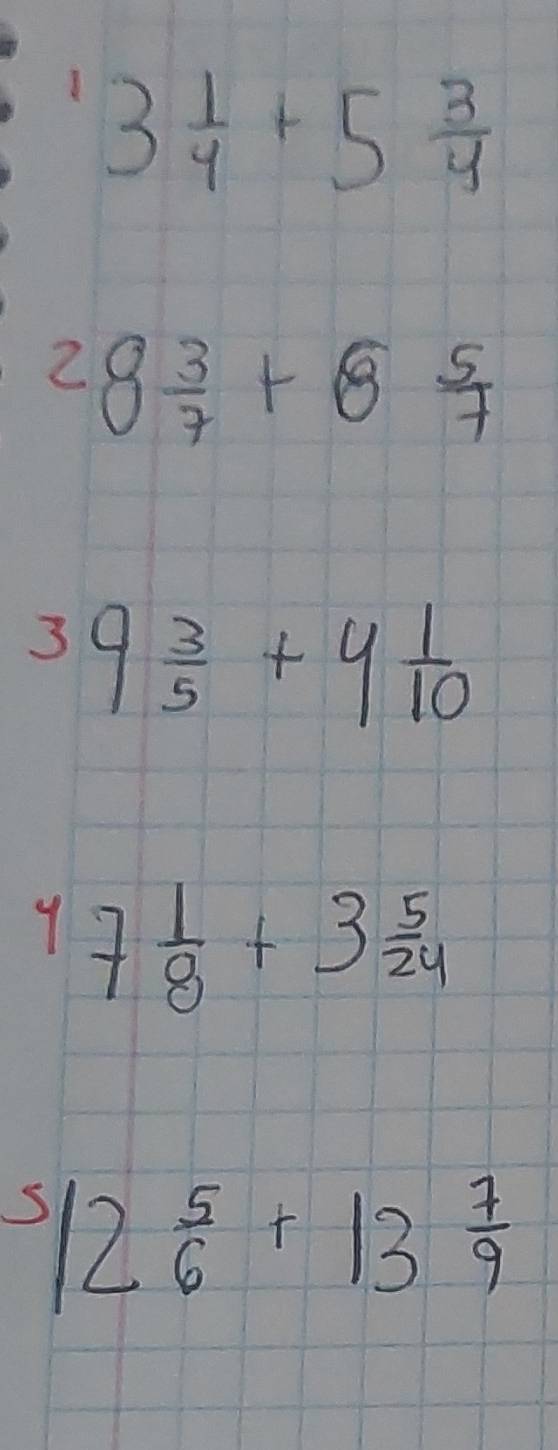 1 3 1/4 + 5 3/4
2 8 3/7 + 6 5/7
3 9 3/5 + 4 1/10
4 7 1/8 + 3 5/24
5 12 5/6 + 13 7/9